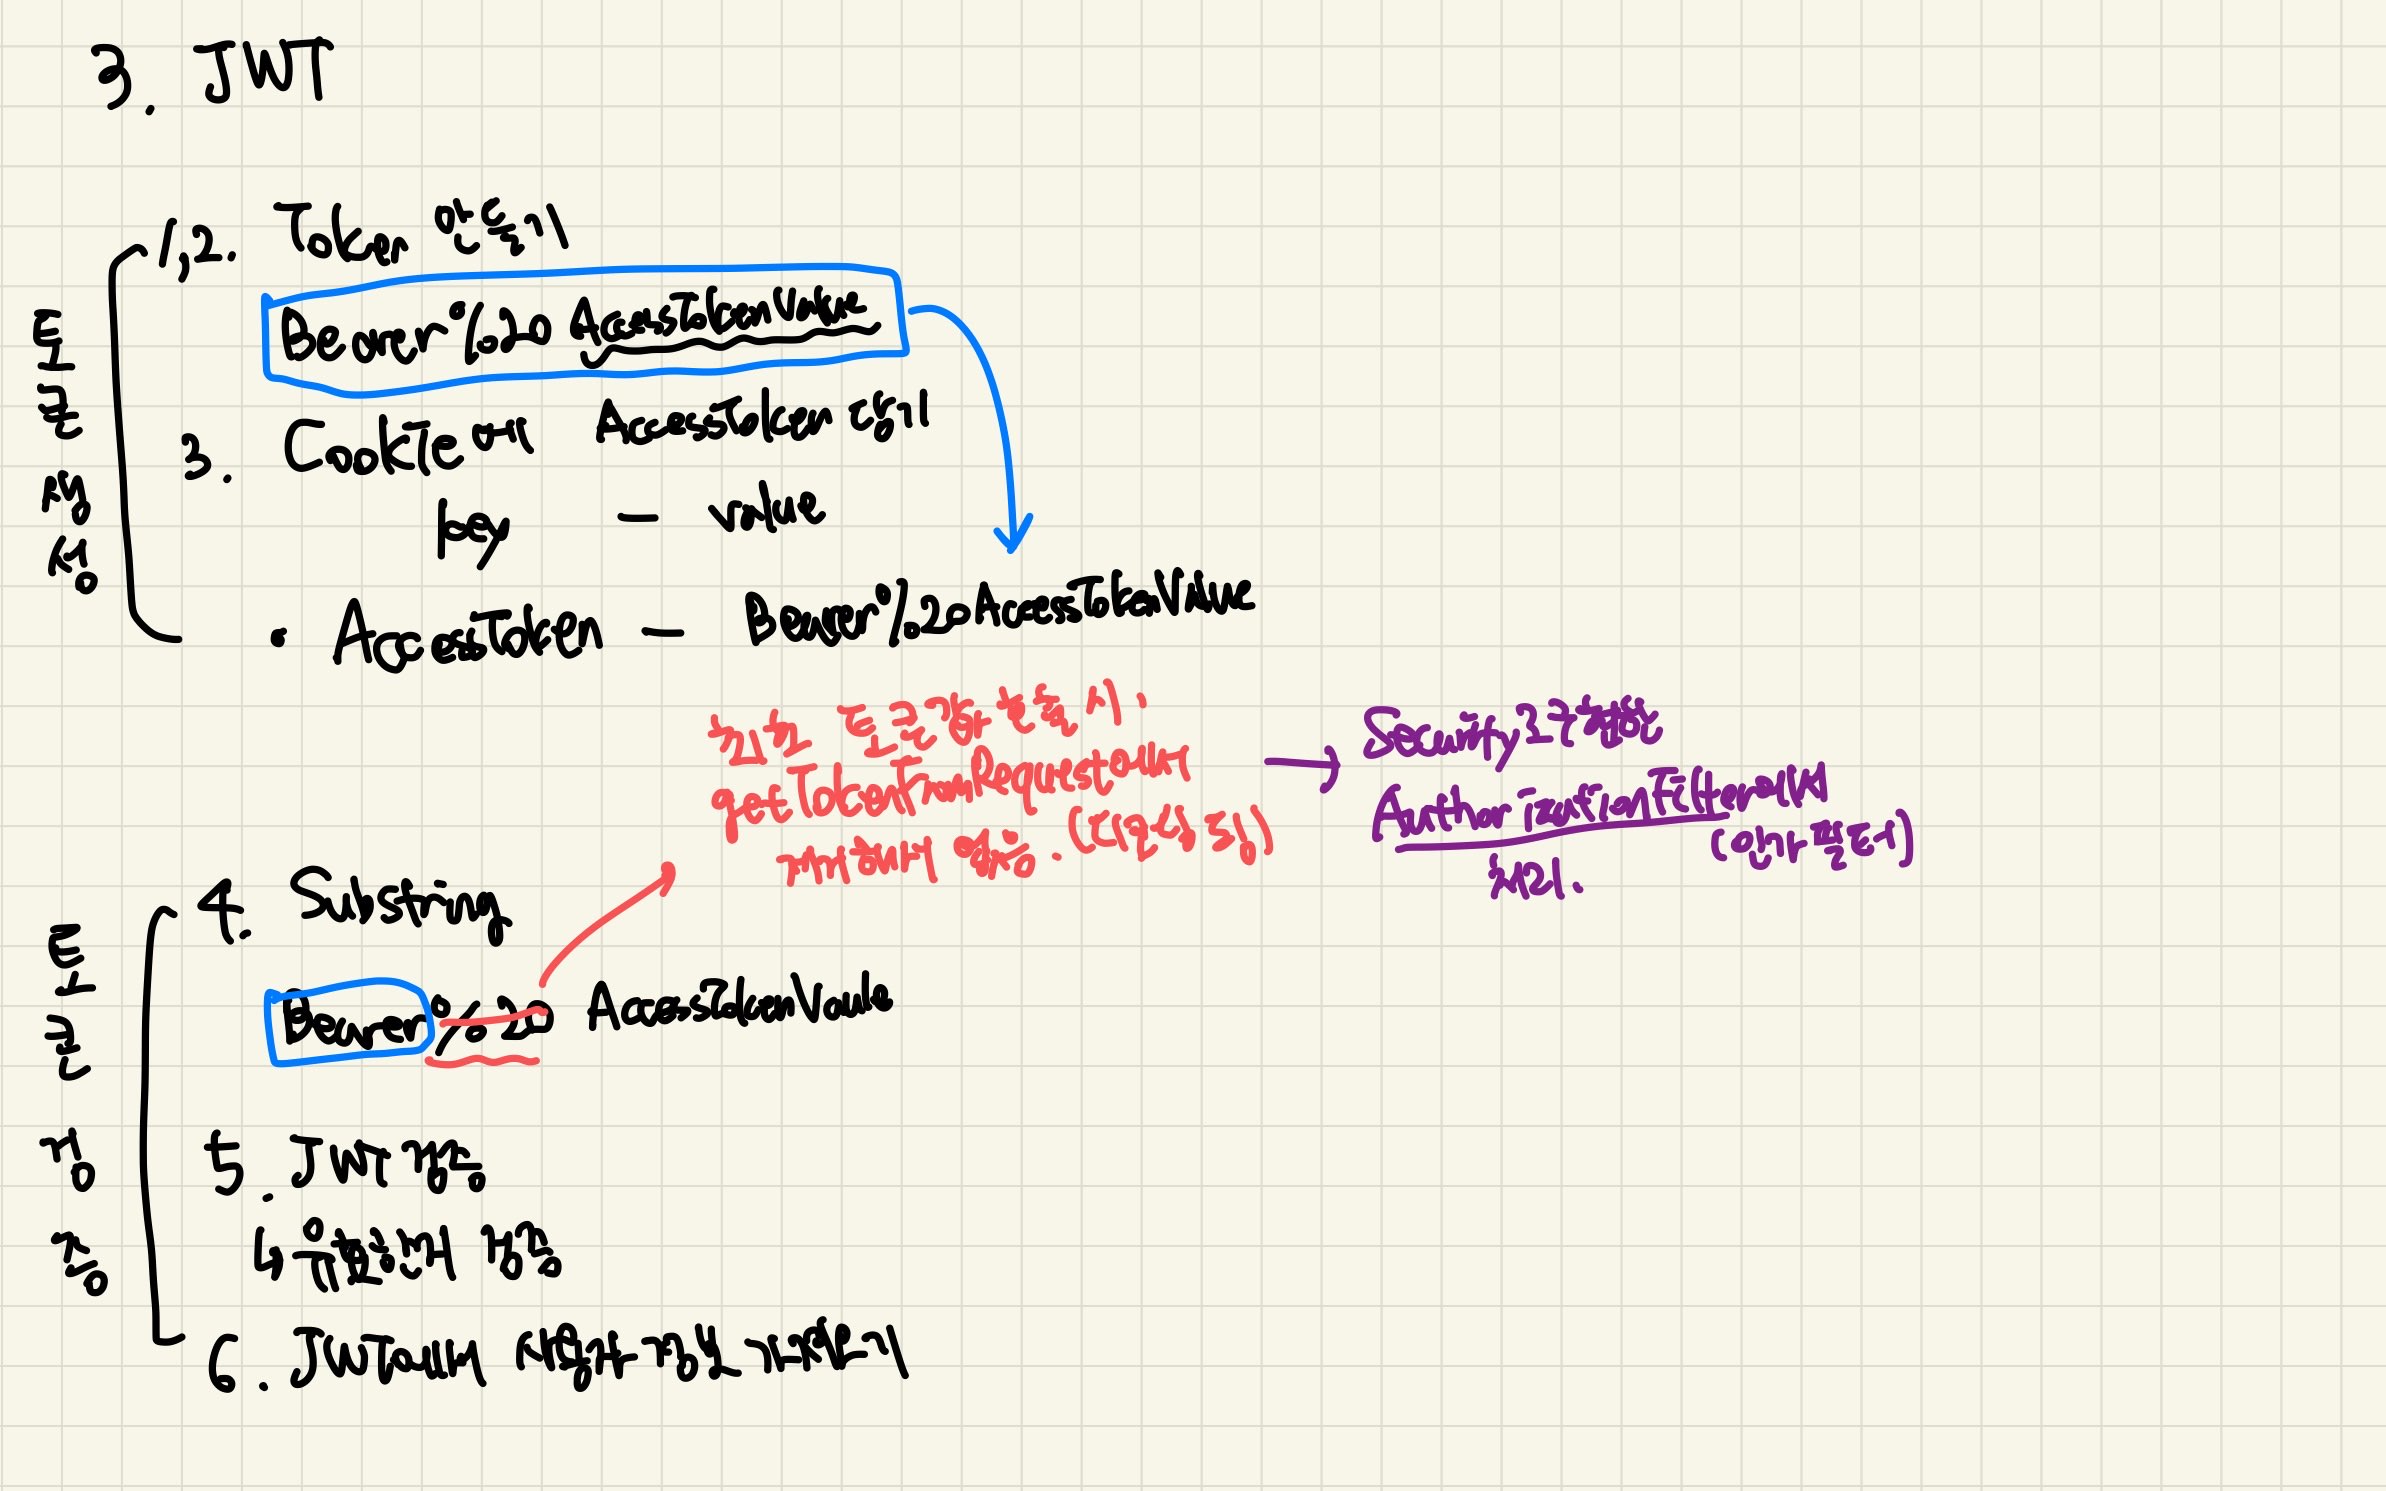 3. JWT
토큰 생성
1,2. Token 만들기
Bearer%20 AccessTokenValue
3. Cookie에 AccessToken 담기
key - value
• AccessToken - Bearer%20AccessTokenValue
최초 토큰값 반환 시,
getTokenFromRequest에서
제거해서 있음. (디코딩)
→ Security 로그
AuthorizationFilter에서
(인가 필터)
처리.
토큰 검증
4. Substring
Bearer%20 AccessTokenVaule
5. JWT 검증
↳ 유효한지 검증
6. JWT에서 사용자 정보 가져오기